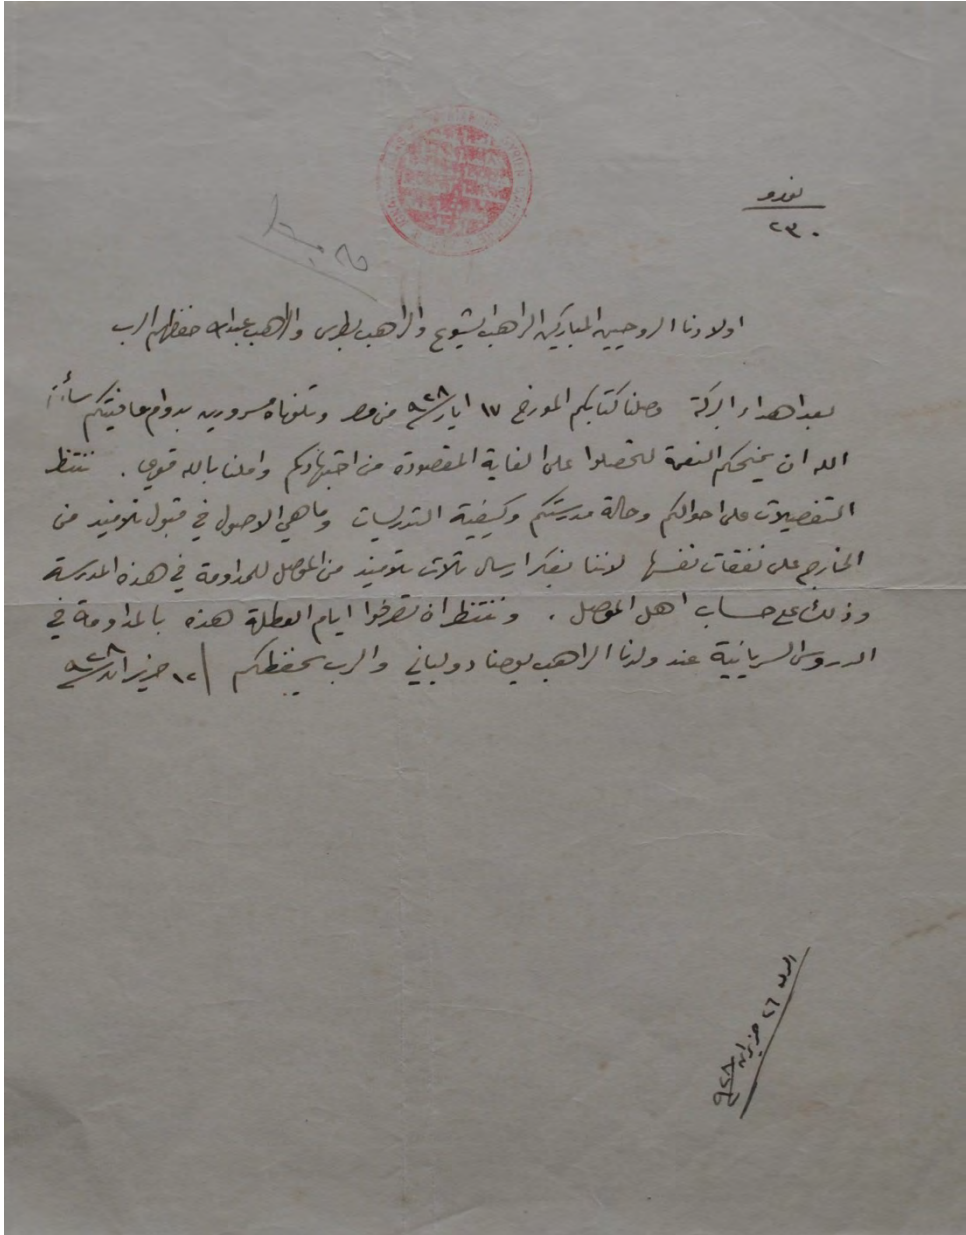 نومرو
٢٣٠
اولادنا الروحيين المباركين الراهب يشوع والراهب بطرس والراهب عبدالله حفظهم الرب
بعد اهداء البركة وصلنا كتابكم المورخ ١٧ ايار ٩٢٨ من مصر وتلوناه مسرورين بدوام عافيتكم سألنا
الله ان يمنحكم النعمة لتحصلوا على الغاية المقصودة من اجتهادكم واملنا بالله قوي . ننتظر
التفصيلات على احوالكم وحالة مدرستكم وكيفية التدريسات وما هي الاصول في قبول تلاميذ من
الخارج على نفقات نفسها لاننا نفكر ارسال ثلاث تلاميذ من الموصل للمداومة في هذه المدرسة
وذلك على حساب اهل الموصل . وننتظر ان تصرفوا ايام العطلة هذه بالمداومة في
الدروس السريانية عند ولدنا الراهب يوحنا دولباني والرب يحفظكم ١٢ حزيران ٩٢٨
٢٦ حزيران ٩٢٨